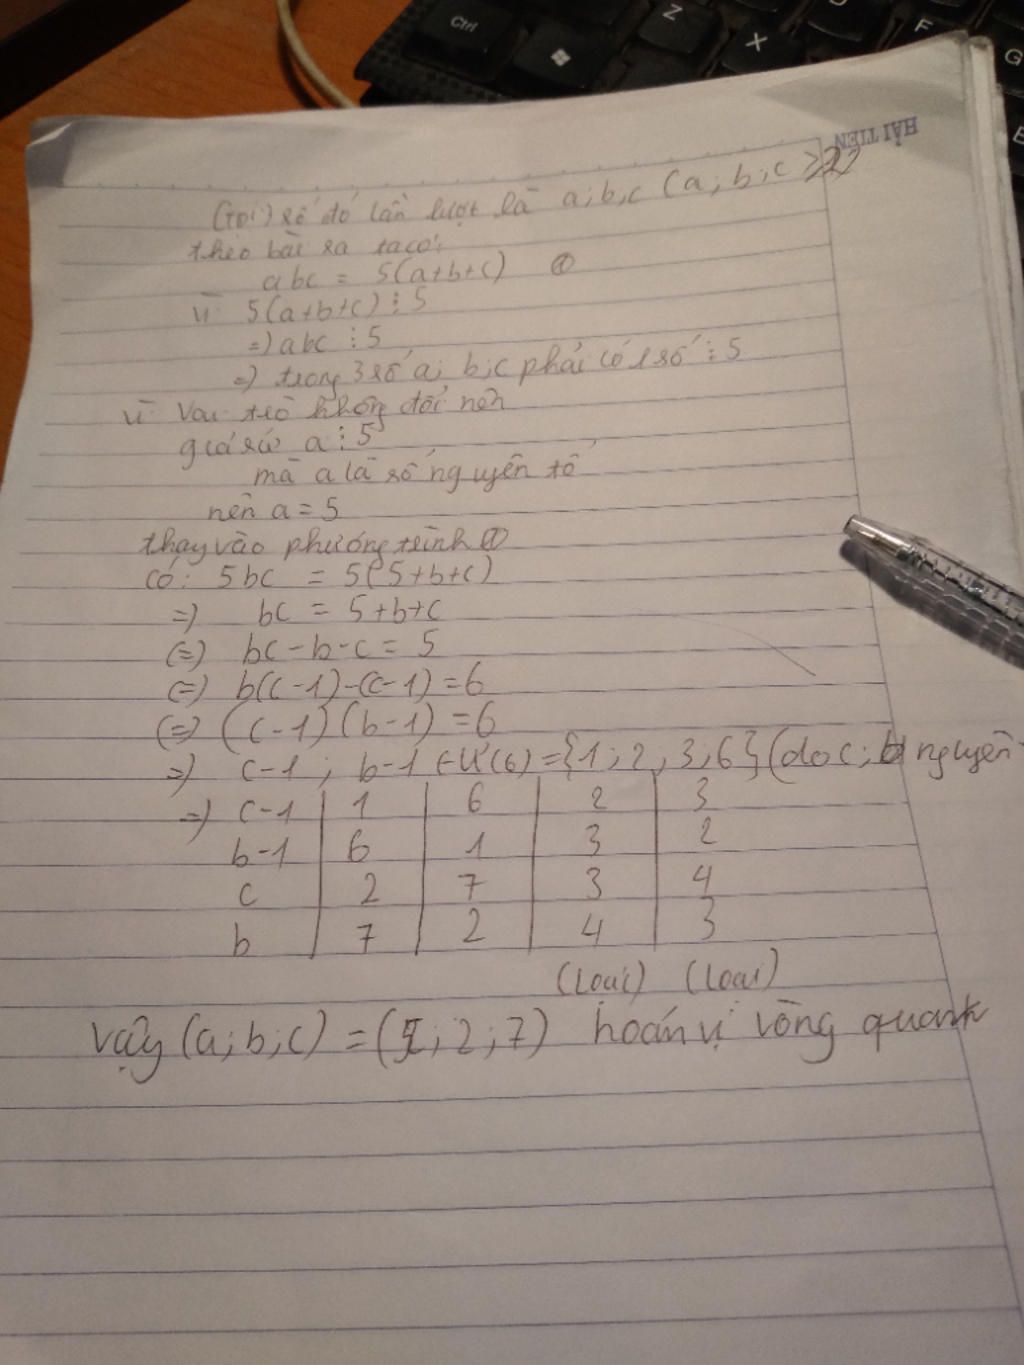 Ctrl
Z
X
D
F
G
HẢI TIẾN
Gọi số đó lần lượt là a;b,c (a;b;c ≥2)
theo bài ra ta có:
abc = 5(a+b+c) ①
vì 5(a+b+c)⋮5
=) abc ⋮5
=) trong 3 số a; b;c phải có 1 số ⋮5
vì vai trò không đổi nên
giả sử a⋮5
mà a là số nguyên tố
nên a=5
thay vào phương trình ①
có: 5bc = 5(5+b+c)
=) bc = 5+b+c
(=) bc-b-c = 5
(=) b(c-1)-(c-1)=6
(=) (c-1)(b-1)=6
=) c-1; b-1 ∈Ư(6)={1;2;3;6}(do c;b nguyên
=) c-1 1 6 2 3
b-1 6 1 3 2
c 2 7 3 4
b 7 2 4 3
(loại) (loại)
vậy (a;b;c)=(5;2;7) hoán vị vòng quanh